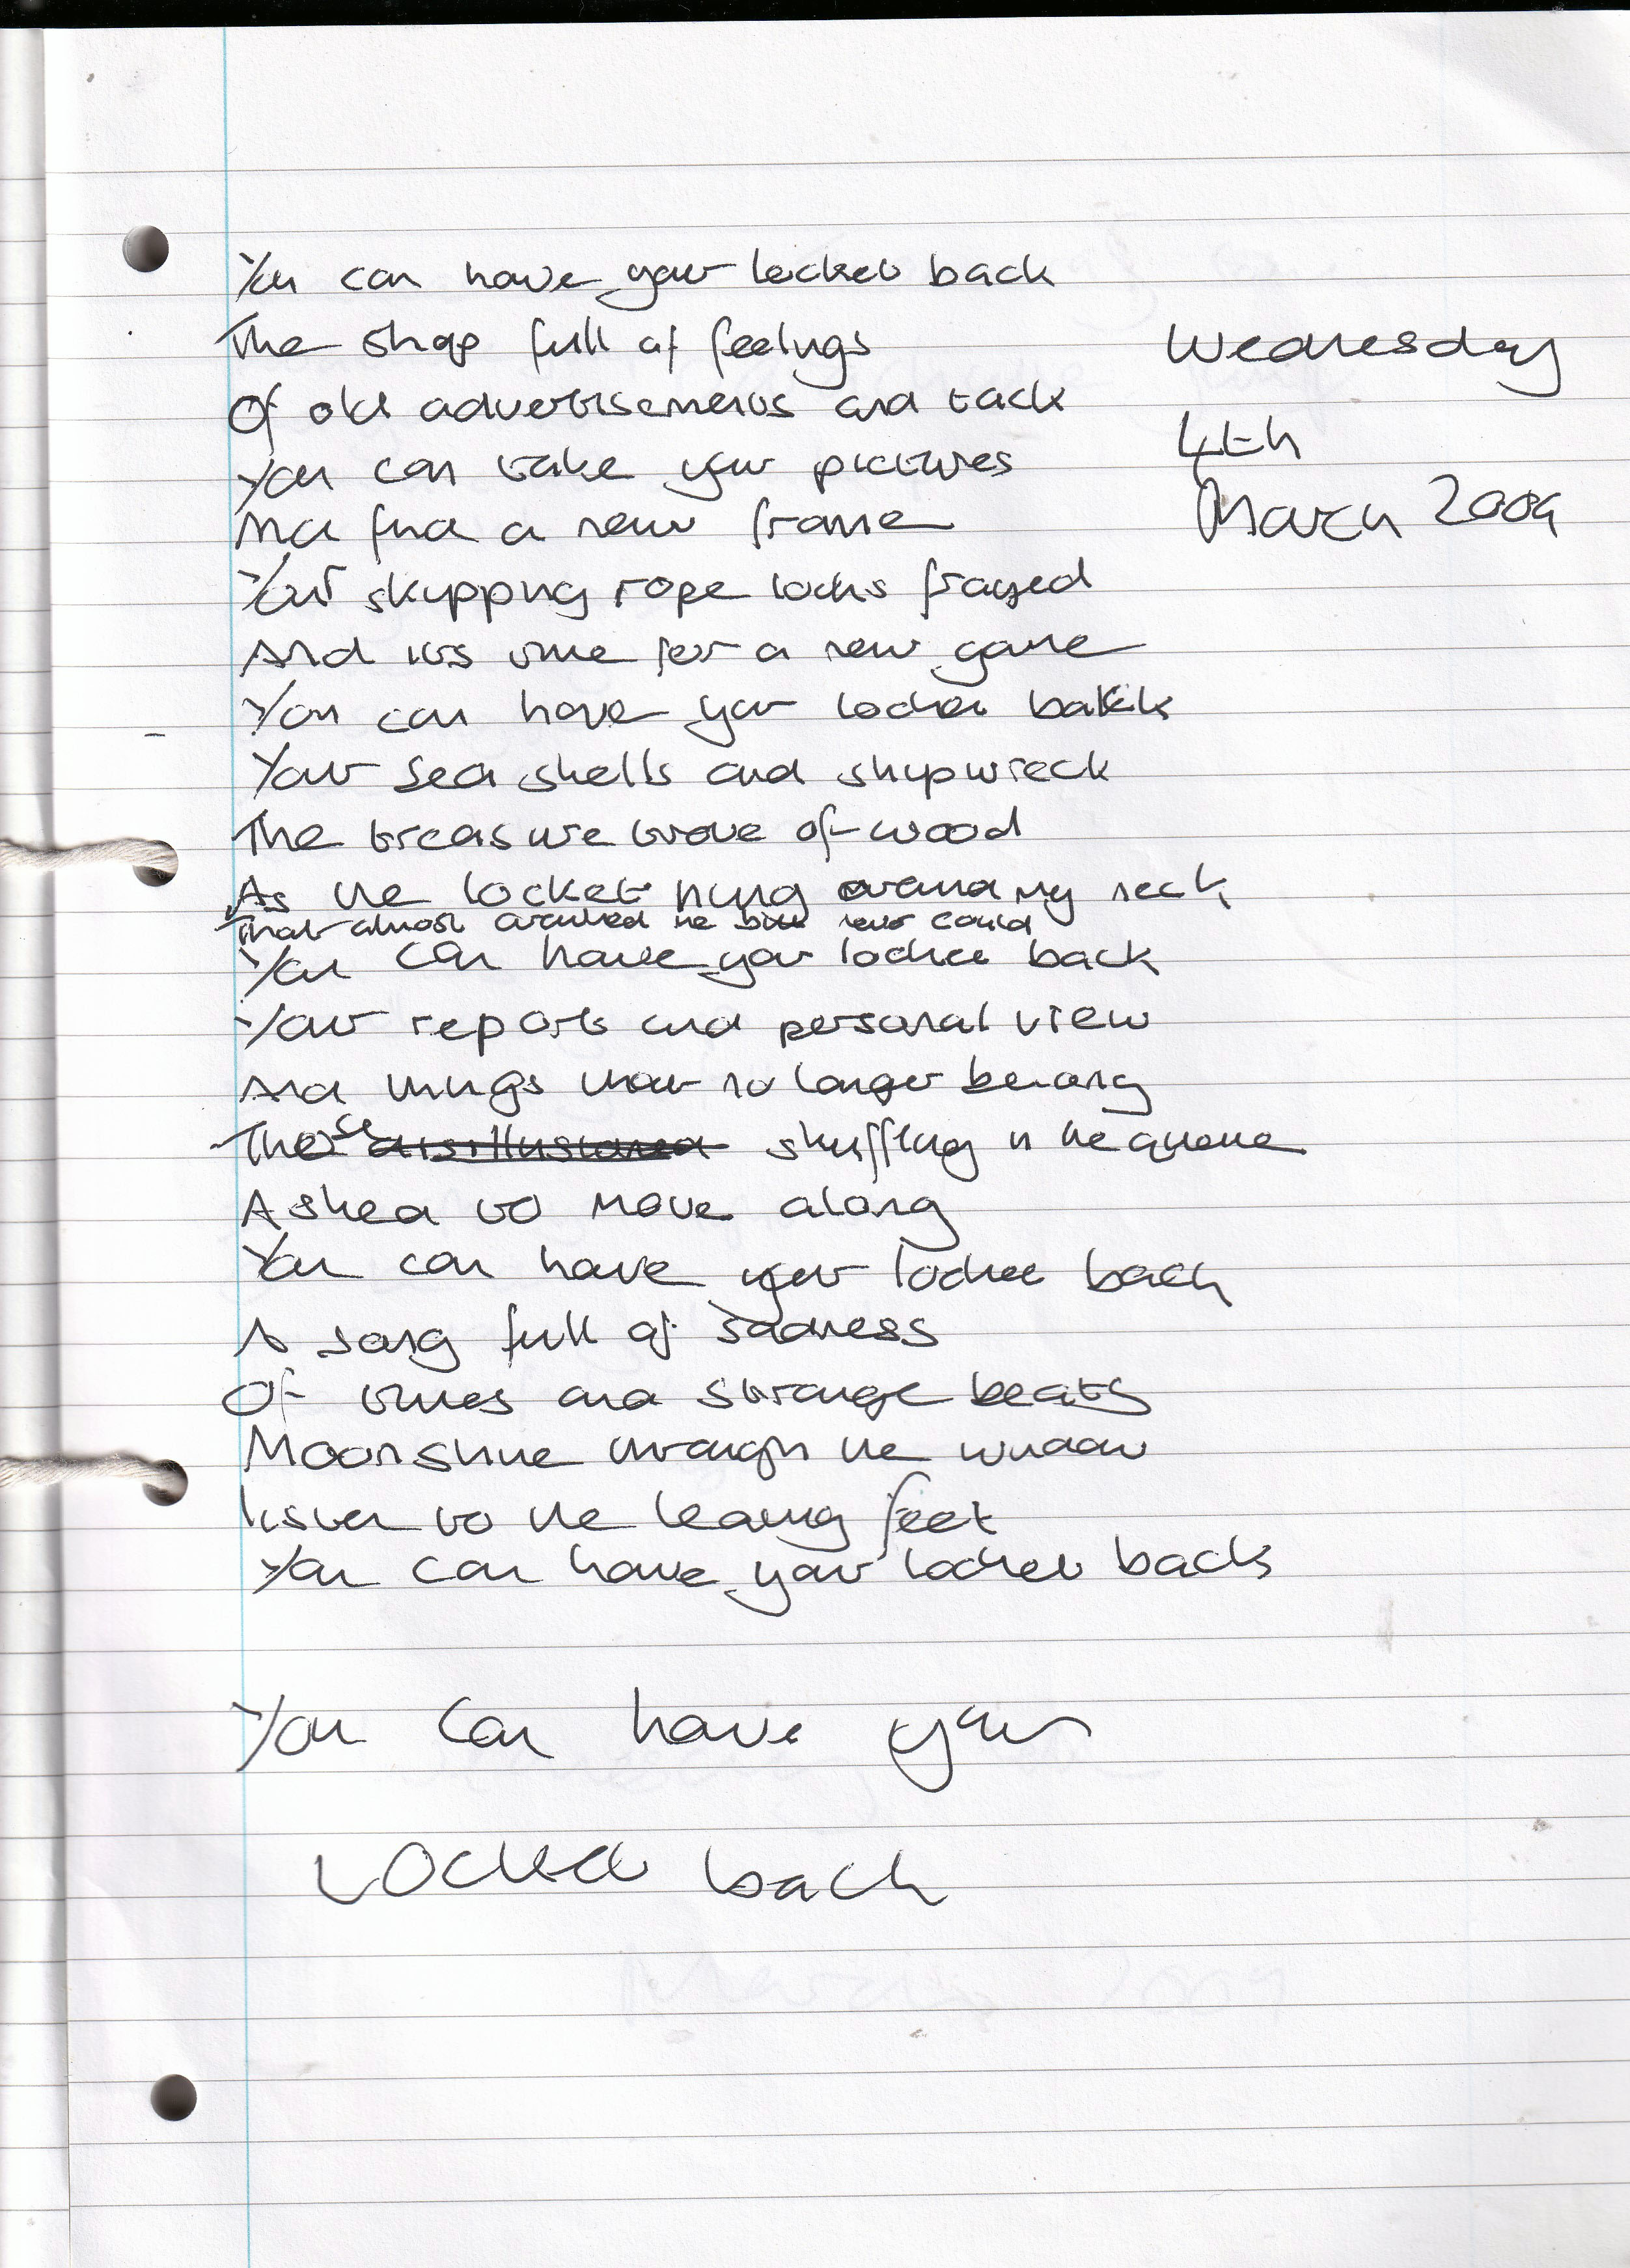 You can have your locket back
The shop full of feelings
Wednesday
Of old advertisements and tack
4th
You can take your pictures
March 2009
And find a new frame
Your skipping rope looks frayed
And its time for a new game
You can have your locket back
Your sea shells and shipwreck
The treasure trove of wood
As the locket hung around my neck
That almost drowned me but never could
You can have your locket back
Your reports and personal view
And things that no longer belong
Those disillusioned shuffling in the queue
Asked to move along
You can have your locket back
A song full of sadness
Of times and strange beats
Moonshine through the window
Listen to the leaving feet
You can have your locket back
You can have your
Locket back